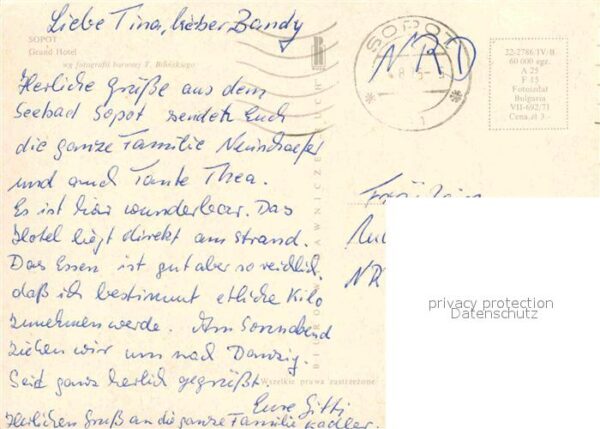 Liebe Tina, lieber Bandy
SOPOT
Grand Hotel
wg fotografii barwnej T. Bilińskiego
Herzliche Grüße aus dem
Seebad Sopot sendet Euch
die ganze Familie Neuschaefer
und auch Tante Thea.
Es ist hier wunderbar. Das
Hotel liegt direkt am Strand.
Das Essen ist gut aber so reichlich,
daß ich bestimmt etliche Kilo
zunehmen werde. Am Sonnabend
ziehen wir um nach Danzig.
Seid ganz herzlich gegrüßt.
Eure Gitti
Herzlichen Gruß an die ganze Familie Kadler.
Wszelkie prawa zastrzeżone
SOPOT
NRD
32-2786/IV-B
60 000 egz.
A 25
F 15
Fotoizdat
Bulgaria
VII-692/71
Cena zł 3.-
Fräulein
NR
privacy protection
Datenschutz